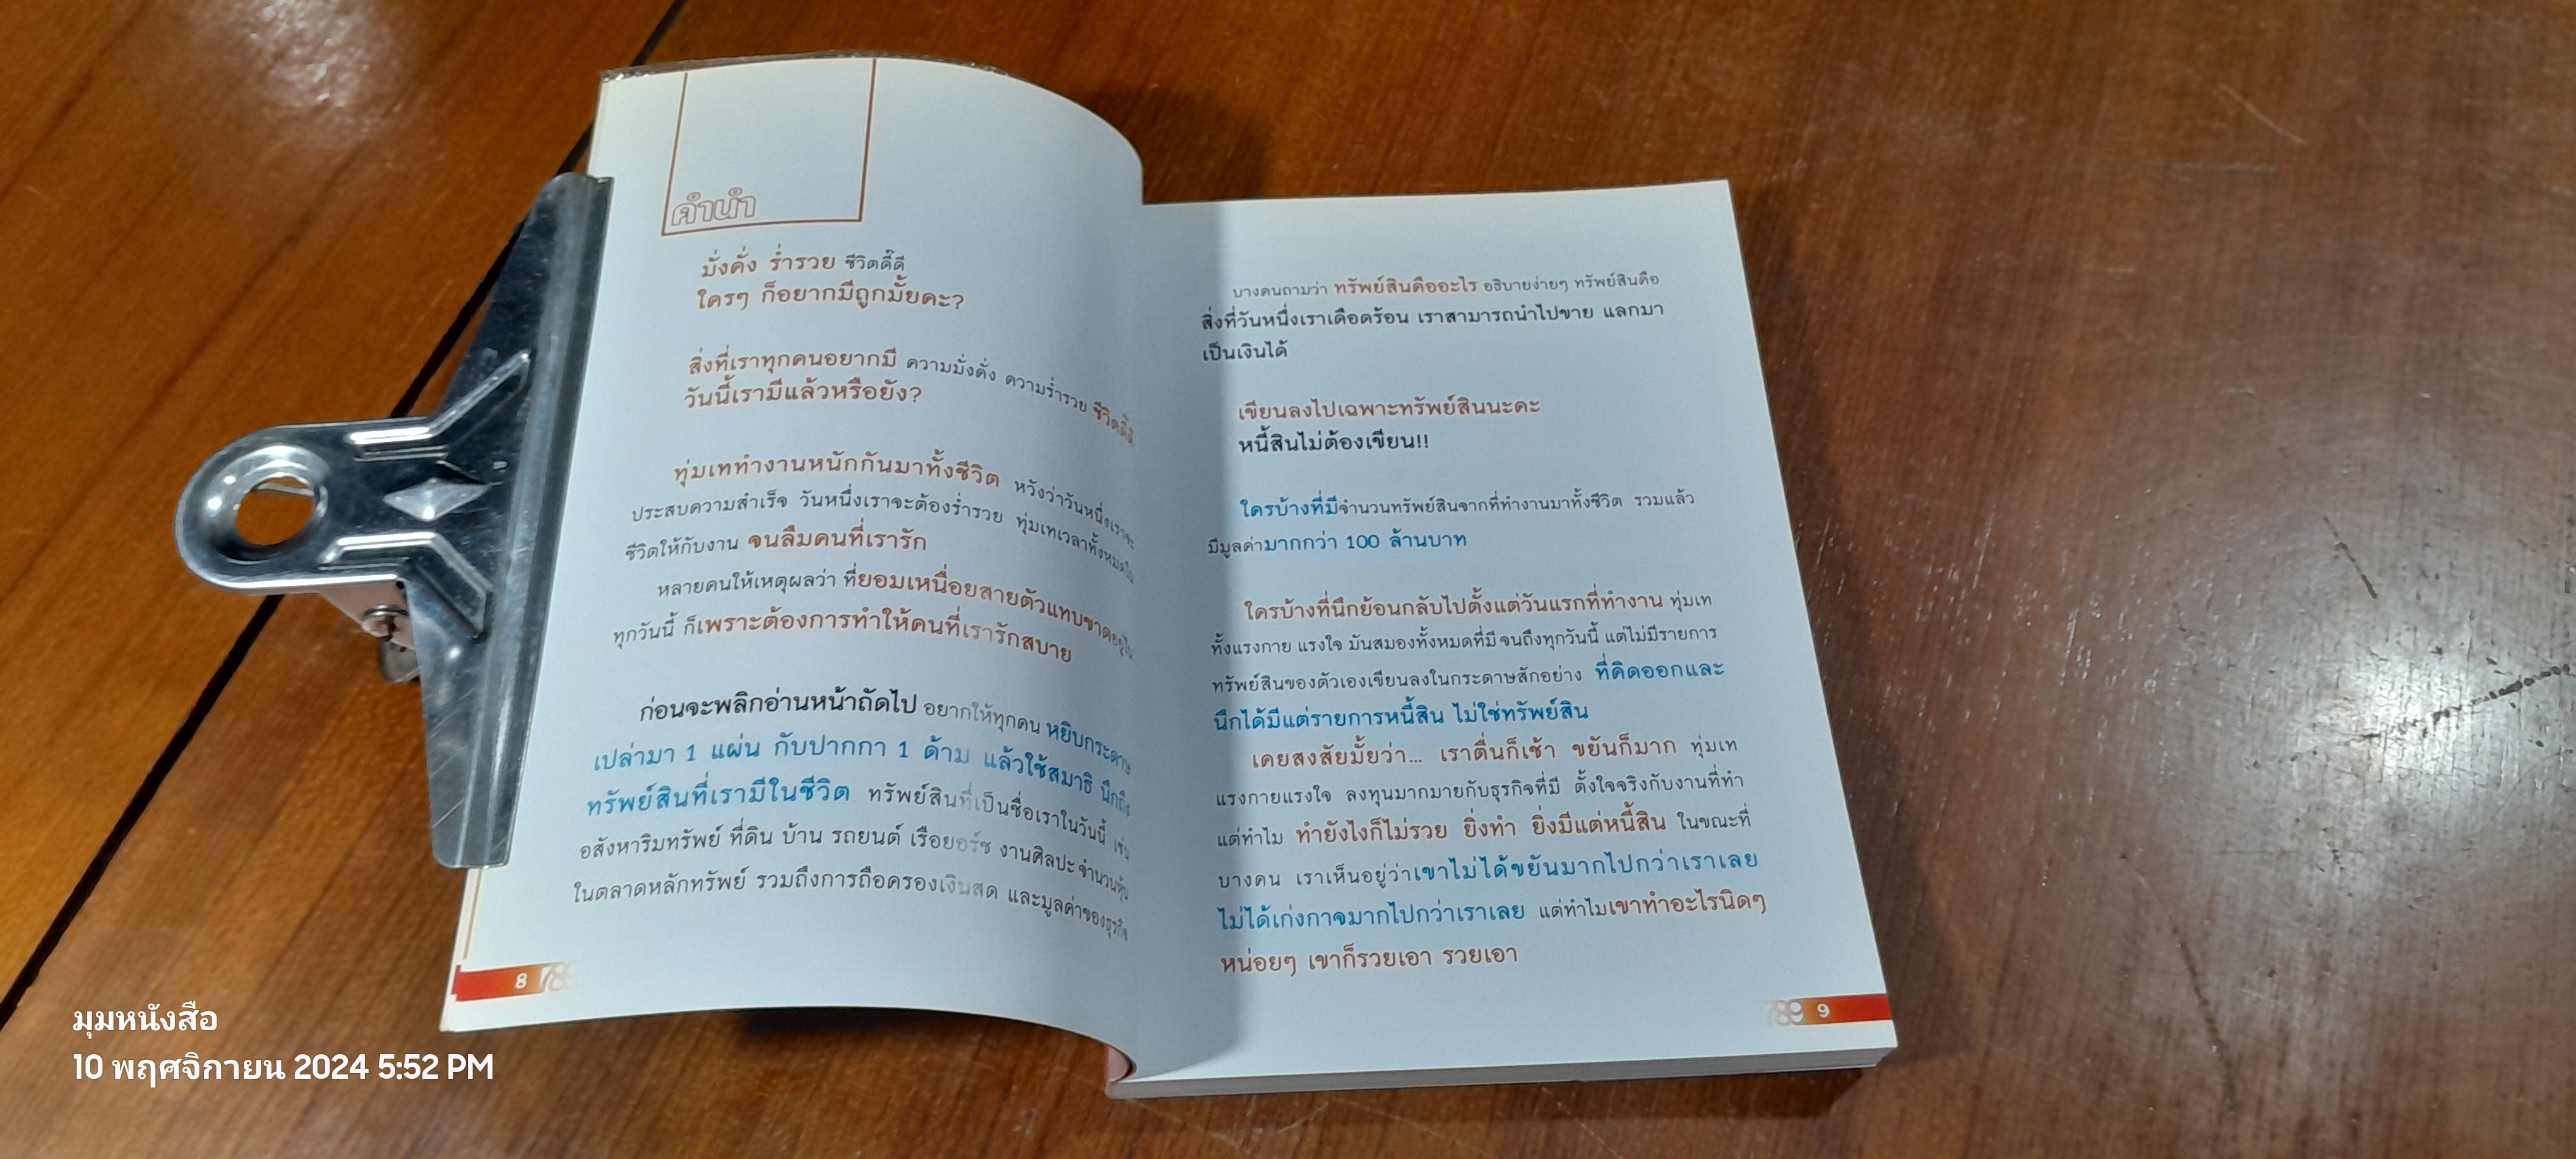 คำนำ
มั่งคั่ง ร่ำรวย ชีวิตดี๊ดี
ใครๆ ก็อยากมีถูกมั้ยคะ?
สิ่งที่เราทุกคนอยากมี ความมั่งคั่ง ความร่ำรวย ชีวิตดี๊ดี
วันนี้เรามีแล้วหรือยัง?
ทุ่มเททำงานหนักกันมาทั้งชีวิต หวังว่าวันหนึ่งเราจะ
ประสบความสำเร็จ วันหนึ่งเราจะต้องร่ำรวย ทุ่มเทเวลาทั้งหมดใน
ชีวิตให้กับงาน จนลืมคนที่เรารัก
หลายคนให้เหตุผลว่า ที่ยอมเหนื่อยสายตัวแทบขาดอยู่ใน
ทุกวันนี้ ก็เพราะต้องการทำให้คนที่เรารักสบาย
ก่อนจะพลิกอ่านหน้าถัดไป อยากให้ทุกคน หยิบกระดาษ
เปล่ามา 1 แผ่น กับปากกา 1 ด้าม แล้วใช้สมาธิ นึกถึง
ทรัพย์สินที่เรามีในชีวิต ทรัพย์สินที่เป็นชื่อเราในวันนี้ เช่น
อสังหาริมทรัพย์ ที่ดิน บ้าน รถยนต์ เรือยอร์ช งานศิลปะ จำนวนหุ้น
ในตลาดหลักทรัพย์ รวมถึงการถือครองเงินสด และมูลค่าของธุรกิจ
8 789
บางคนถามว่า ทรัพย์สินคืออะไร อธิบายง่ายๆ ทรัพย์สินคือ
สิ่งที่วันหนึ่งเราเดือดร้อน เราสามารถนำไปขาย แลกมา
เป็นเงินได้
เขียนลงไปเฉพาะทรัพย์สินนะคะ
หนี้สินไม่ต้องเขียน!!
ใครบ้างที่มีจำนวนทรัพย์สินจากที่ทำงานมาทั้งชีวิต รวมแล้ว
มีมูลค่ามากกว่า 100 ล้านบาท
ใครบ้างที่นึกย้อนกลับไปตั้งแต่วันแรกที่ทำงาน ทุ่มเท
ทั้งแรงกาย แรงใจ มันสมองทั้งหมดที่มี จนถึงทุกวันนี้ แต่ไม่มีรายการ
ทรัพย์สินของตัวเองเขียนลงในกระดาษสักอย่าง ที่คิดออกและ
นึกได้มีแต่รายการหนี้สิน ไม่ใช่ทรัพย์สิน
เคยสงสัยมั้ยว่า... เราตื่นก็เช้า ขยันก็มาก ทุ่มเท
แรงกายแรงใจ ลงทุนมากมายกับธุรกิจที่มี ตั้งใจจริงกับงานที่ทำ
แต่ทำไม ทำยังไงก็ไม่รวย ยิ่งทำ ยิ่งมีแต่หนี้สิน ในขณะที่
บางคน เราเห็นอยู่ว่าเขาไม่ได้ขยันมากไปกว่าเราเลย
ไม่ได้เก่งกาจมากไปกว่าเราเลย แต่ทำไมเขาทำอะไรนิดๆ
หน่อยๆ เขาก็รวยเอา รวยเอา
789 9
มุมหนังสือ
10 พฤศจิกายน 2024 5:52 PM